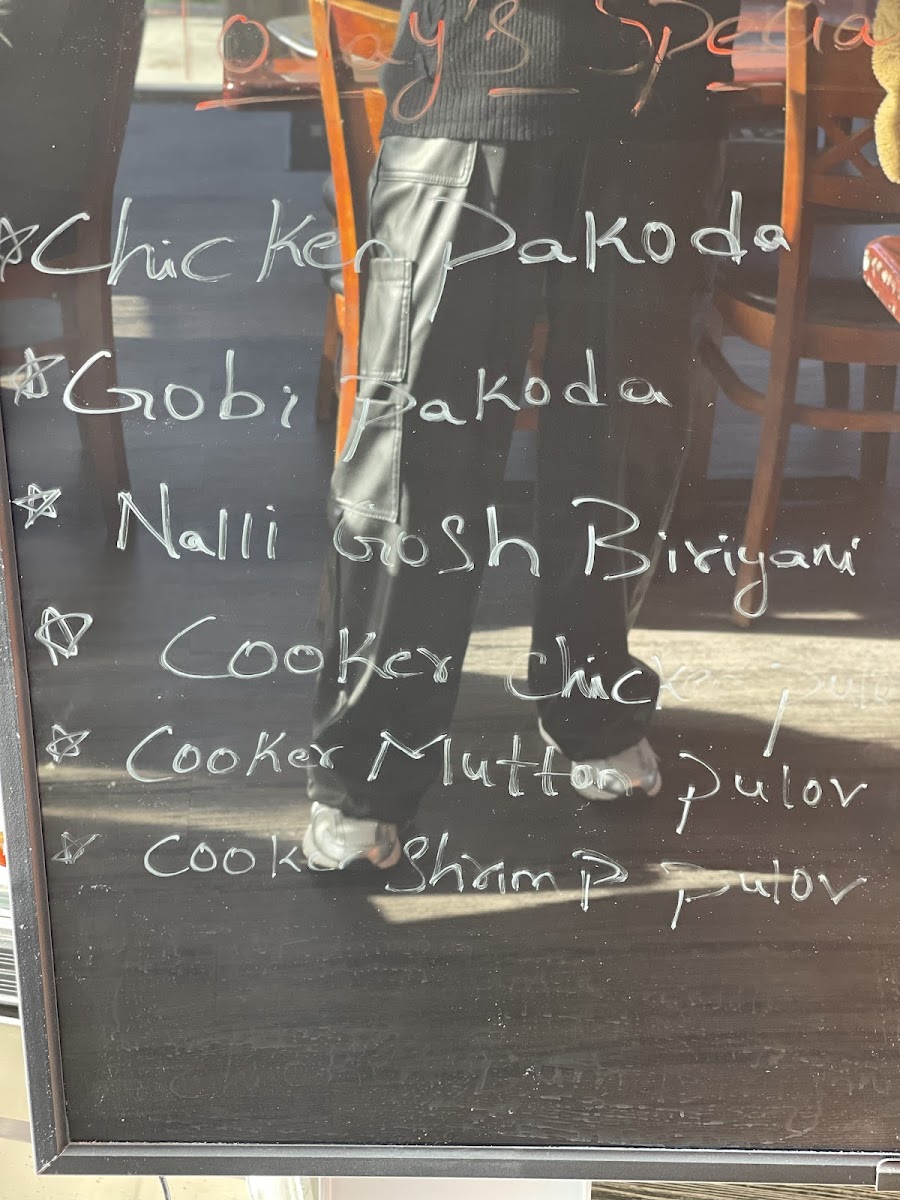 oday's Specia
☆ Chicken Pakoda
☆ Gobi Pakoda
☆ Nalli Gosh Biriyani
☆ Cooker Chicken pulo
☆ Cooker Mutton pulov
☆ Cooker Shrimp pulov